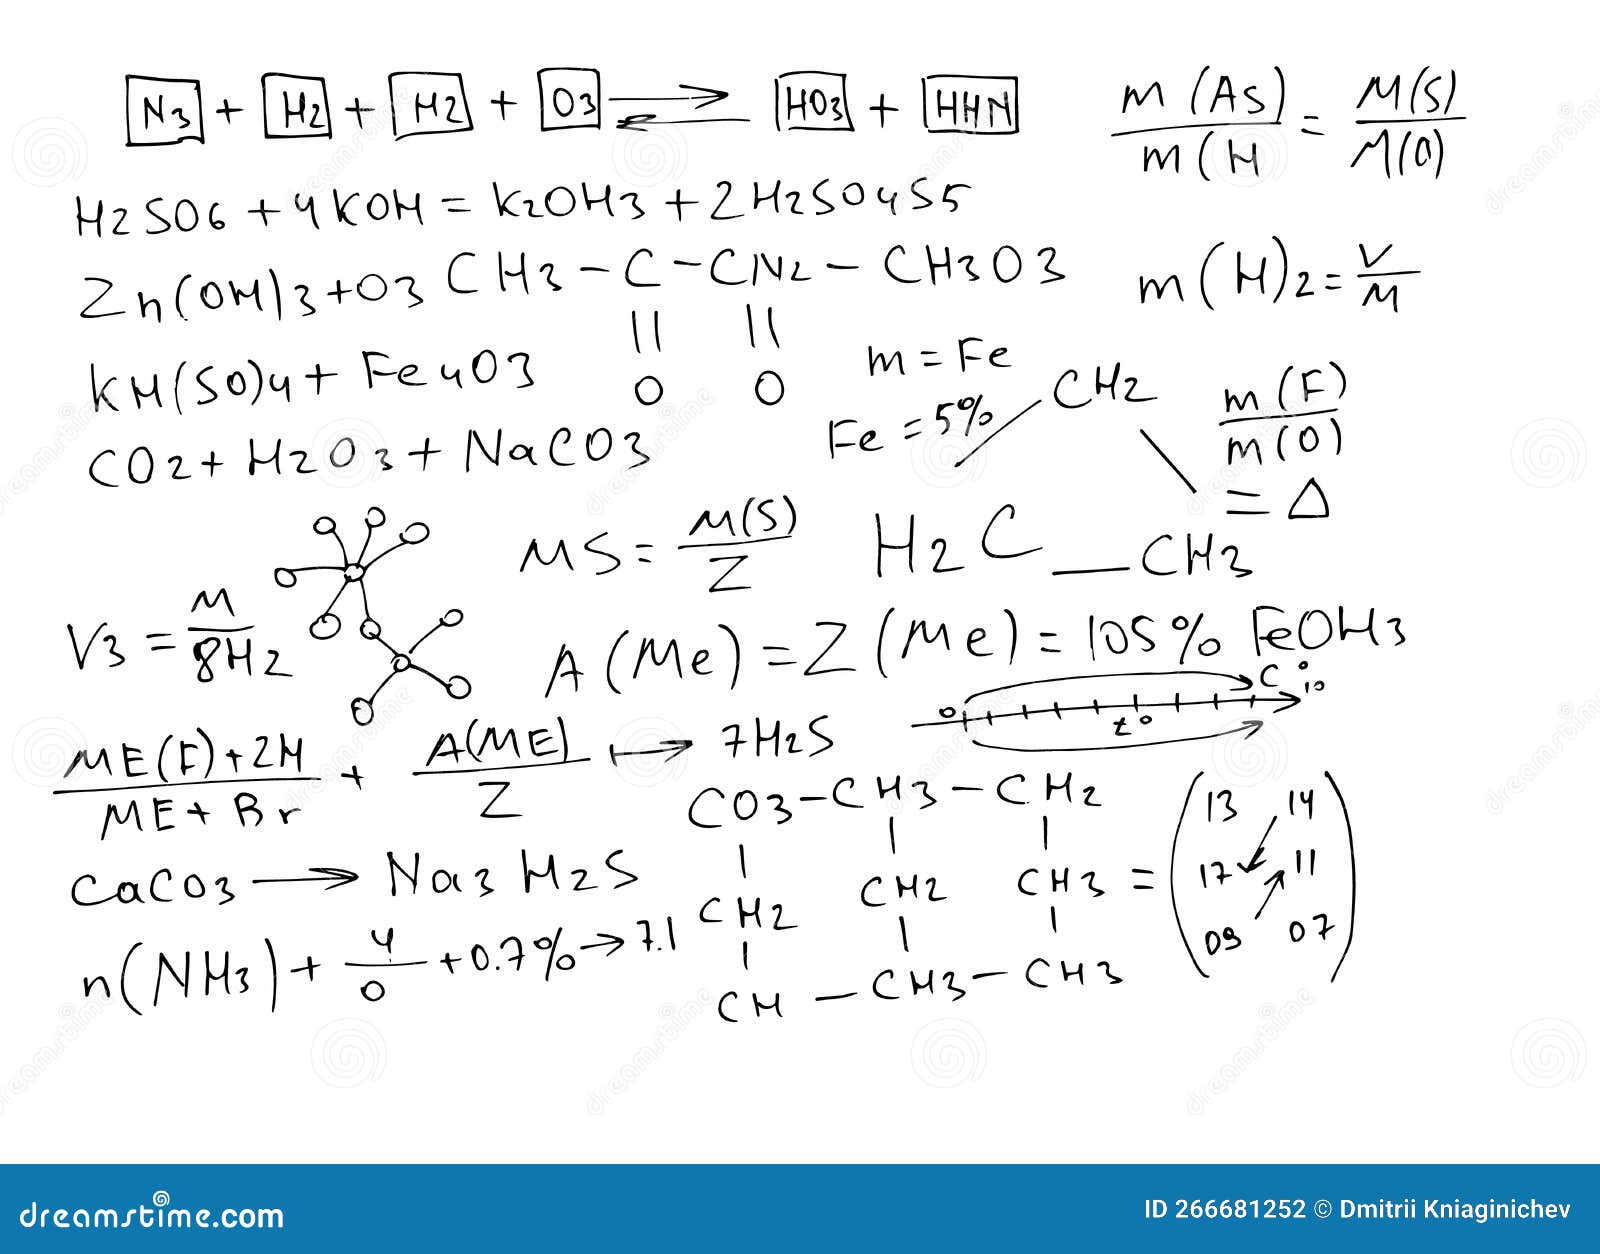 N3 + H2 + H2 + O3 ⇌ HO3 + HHN
m (As) / m (H = M(S) / M(O)
H2SO6 + 4KOH = K2OH3 + 2H2SO4S5
Zn(OH)3+O3 CH3 – C – CN2 – CH3O3
|| ||
O O
m(H)2 = V / M
KH(SO)4 + Fe4O3
m = Fe
Fe = 5%
CH2
m (F) / m (O)
= Δ
CO2 + H2O3 + NaCO3
MS = M(S) / Z
H2C — CH3
V3 = M / 8H2
A (Me) = Z (Me) = 105% FeOH3
0 t° C° 10
ME(F)+2H / ME+Br + A(ME) / Z ↦ 7H2S
CO3–CH3–CH2
| | |
CH2 CH2 CH3 =
| | |
CH – CH3 – CH3
13 14
17 11
09 07
CaCO3 → Na3H2S
n(NH3) + 4 / 0 + 0.7% → 7.1
dreamstime.com
ID 266681252 © Dmitrii Kniaginichev